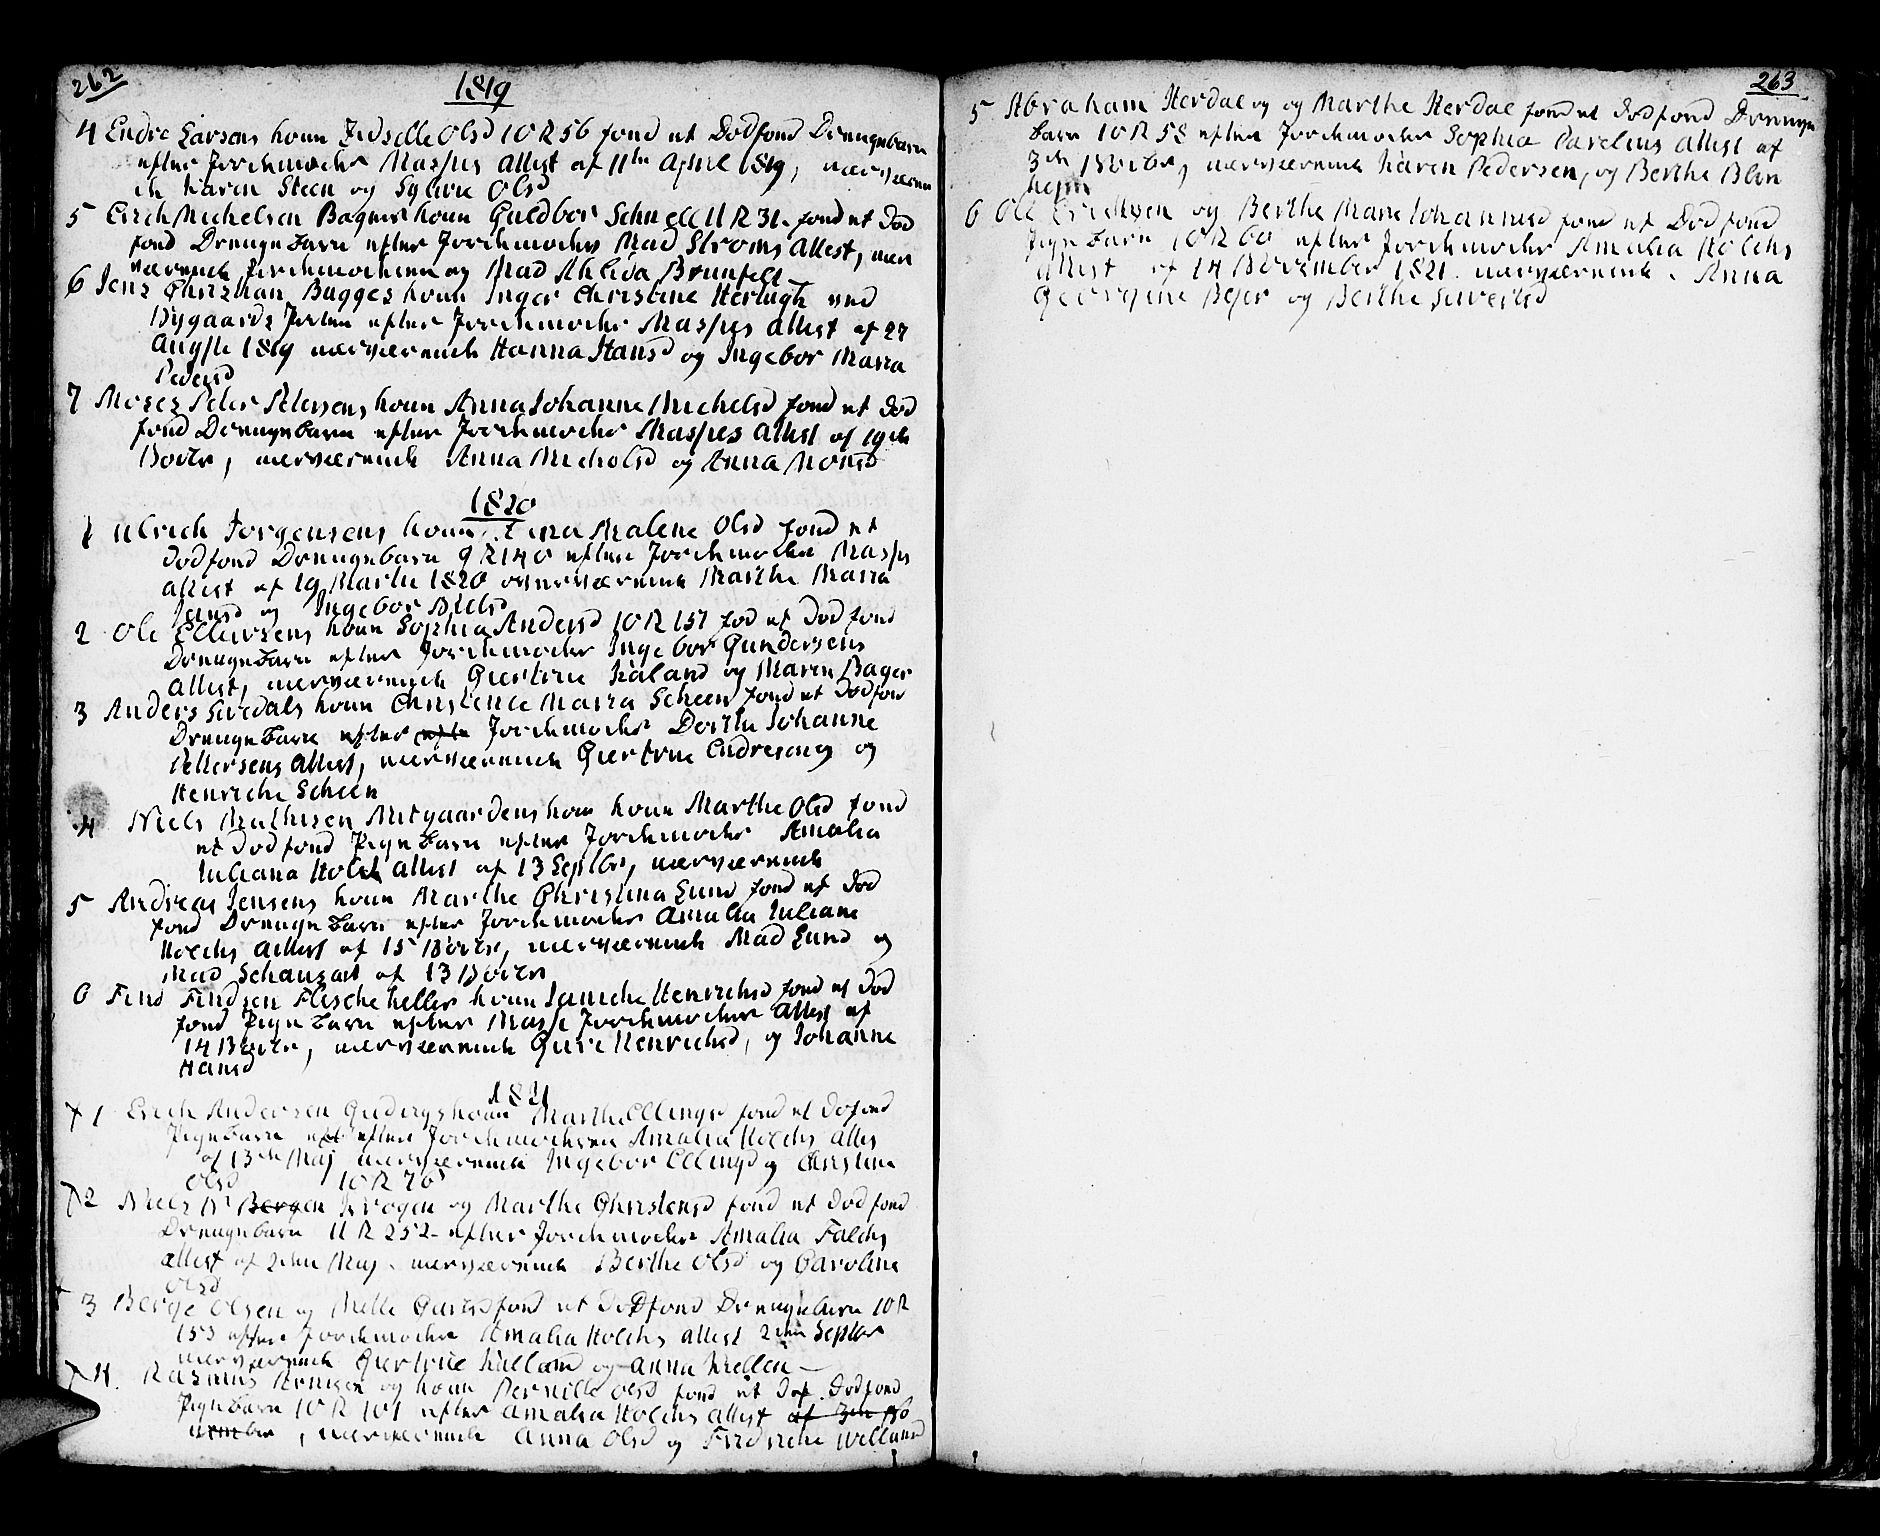 262
1819
4 Endre Larsens koun Zidselle Olsd 10 R 56 fond et Dodfond Drengebarn
efter Jordemoder Masses Attest af 11te April 1819, nærværen
de Karen Steen og Sylvie Olsd
5 Erich Michelsen Bagers koun Guldbor Schnell 11 R 31. fond et Dod
fond Drenge Barn efter Jordemoders Mad Strøms Attest, nær
værende Jordemoderen og Mad Ahlida Brunfelt
6 Jens Christian Bugges koun Inger Christine Hertugh ved
Nygaards Porten efter Jordemoder Masses Attest af 27
Augste 1819 nærværende Hanna Hansd og Ingebor Maria
Pedersd
7 Moses Peter Petersens koun Anna Iohanne Michelsd fond et Dod
fond Drengebarn efter Jordemoder Masses Attest af 19de
Novbr, nærværende Anna Nicholsd og Anna Monsd
1820
1 Ulrich Jorgensens koun Malene Olsd fond et
Dodfond Drengebarn 9 R 140 efter Jordemoder Masses
Attest af 19 Martii 1820 nærværende Marthe Maria
Jansd og Ingebor Nielsd
2 Ole Ellewsens koun Sophia Andersd 10 R 157 fod et Dod fond
Drenge Barn efter Jordemoder Ingebor Gundersens
Attest, nærværende Giertrue Kaland og Maren Bager
3 Anders Sivedals koun Christence Maria Scheen fond et Dodfon
Drenge Barn efter efte Jordemoder Dorthe Iohanne
Pettersens Attest, nærværende Giertrue Endresens og
Henriche Scheen
4 Niels Mathisen Mitgaardens koun koun Marthe Olsd fond
et Dodfond Pige Barn efter Jordemoder Amalia
Iuliana Holch Attest af 13 Septbr, nærværende
5 Andreas Jensens koun Marthe Christina Lund fond et Dod
fond Drenge Barn efter Jordemoder Amalia Iuliane
Holchs Attest af 15 Novbr, nærværende Mad Lund og
Mad af 13 Novbr
6 Find Findsen Flesche koun Iannche Henrichsd fond et Dod
fond Pige Barn efter Masse Jordemoder Attest af
14 Novbr, nærværende Guri Henrichsd, og Iohanne
Hansd
1821
1 Erich Andersen koun Marthe Ellingsd fond et Dofond
Pige Barn eft efter Jordemoderen Amalia Holchs Attes
af 13de Maj nærværende Ingebor Ellingsd og Christina
Olsd 10 R 70
2 Niels Bergen Krogen og Marthe Christensd fond et Dodfond
Drengebarn 11 R 252 efter Jordemoder Amalia Falchs
Attest af 2den Maj. nærværende Berthe Olsd og Caroline
Olsd
3 Berge Olsen og Melle fond et Dodfond Drengebarn 10 R
153 efter Jordemoder Amalia Holchs Attest 2den Septbr
nærværende Giertrue Kalland og Anna Mellen
4. Rasmus og koun Pernille Olsd fond et Dof. Dodfond
Pige Barn 10 R 101 efter Amalia Holchs Attest af 3de No
vember, nærværende Anna Olsd og Fredriche
263
5 Abraham Herdal og og Marthe Herdal fond et Dodfond Drenge
Barn 10 R 58 efter Jordemoder Sophia Parelius Attest af
3de Novbr, nærværende Karen Pedersen, og Berthe Blen
heim
6 Ole Erichsen og Berthe Marie Iohannesd fond et Dodfond
Pige Barn 10 R 60 efter Jordemoder Amalia Holchs
Attest af 14 November 1821. nærværende. Anna
Georgine Bejer og Berthe Siversd